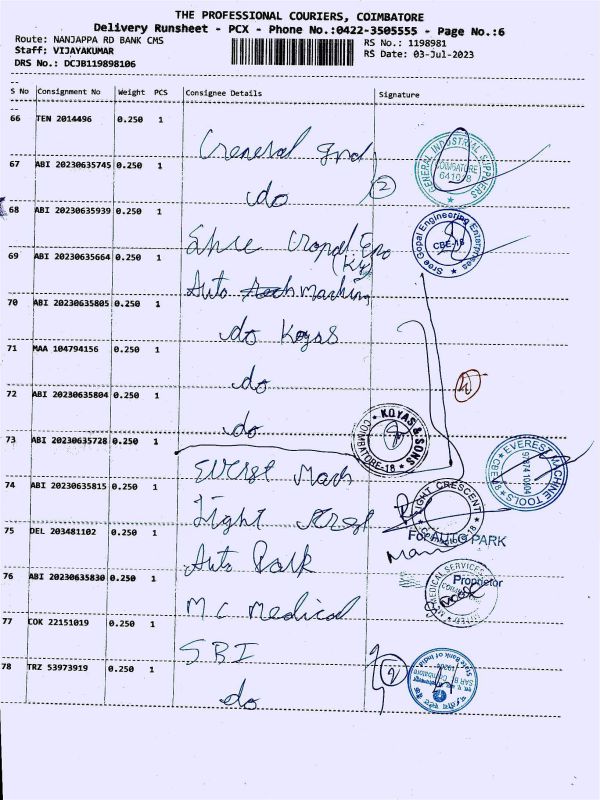 THE PROFESSIONAL COURIERS, COIMBATORE
Delivery Runsheet - PCX - Phone No.:0422-3505555 - Page No.:6
Route: NANJAPPA RD BANK CMS
RS No.: 1198981
Staff: VIJAYAKUMAR
RS Date: 03-Jul-2023
DRS No.: DCJB119898106
S No Consignment No Weight PCS Consignee Details Signature
66 TEN 2014496 0.250 1 General Ind
GENERAL INDUSTRIAL SUPPLIERS
COIMBATORE
641018
67 ABI 20230635745 0.250 1 do 2
68 ABI 20230635939 0.250 1 Shree Gopal
Sree Gopal Engineering Enterprises
CBE-18
69 ABI 20230635664 0.250 1 Auto Machine
70 ABI 20230635805 0.250 1 do Koyas
71 MAA 104794156 0.250 1 do
72 ABI 20230635804 0.250 1 do
KOYAS & SONS
COIMBATORE-18
73 ABI 20230635728 0.250 1 Everst Mach
EVEREST MACHINE TOOLS
97874 10404
74 ABI 20230635815 0.250 1 Light
LIGHT CRESCENT
75 DEL 203481102 0.250 1 Auto Park
For AUTO PARK
Mani
Proprietor
76 ABI 20230635830 0.250 1 MC Medical
MEDICAL SERVICES
77 COK 22151019 0.250 1 SBI
78 TRZ 53973919 0.250 1 do 2
State Bank of India